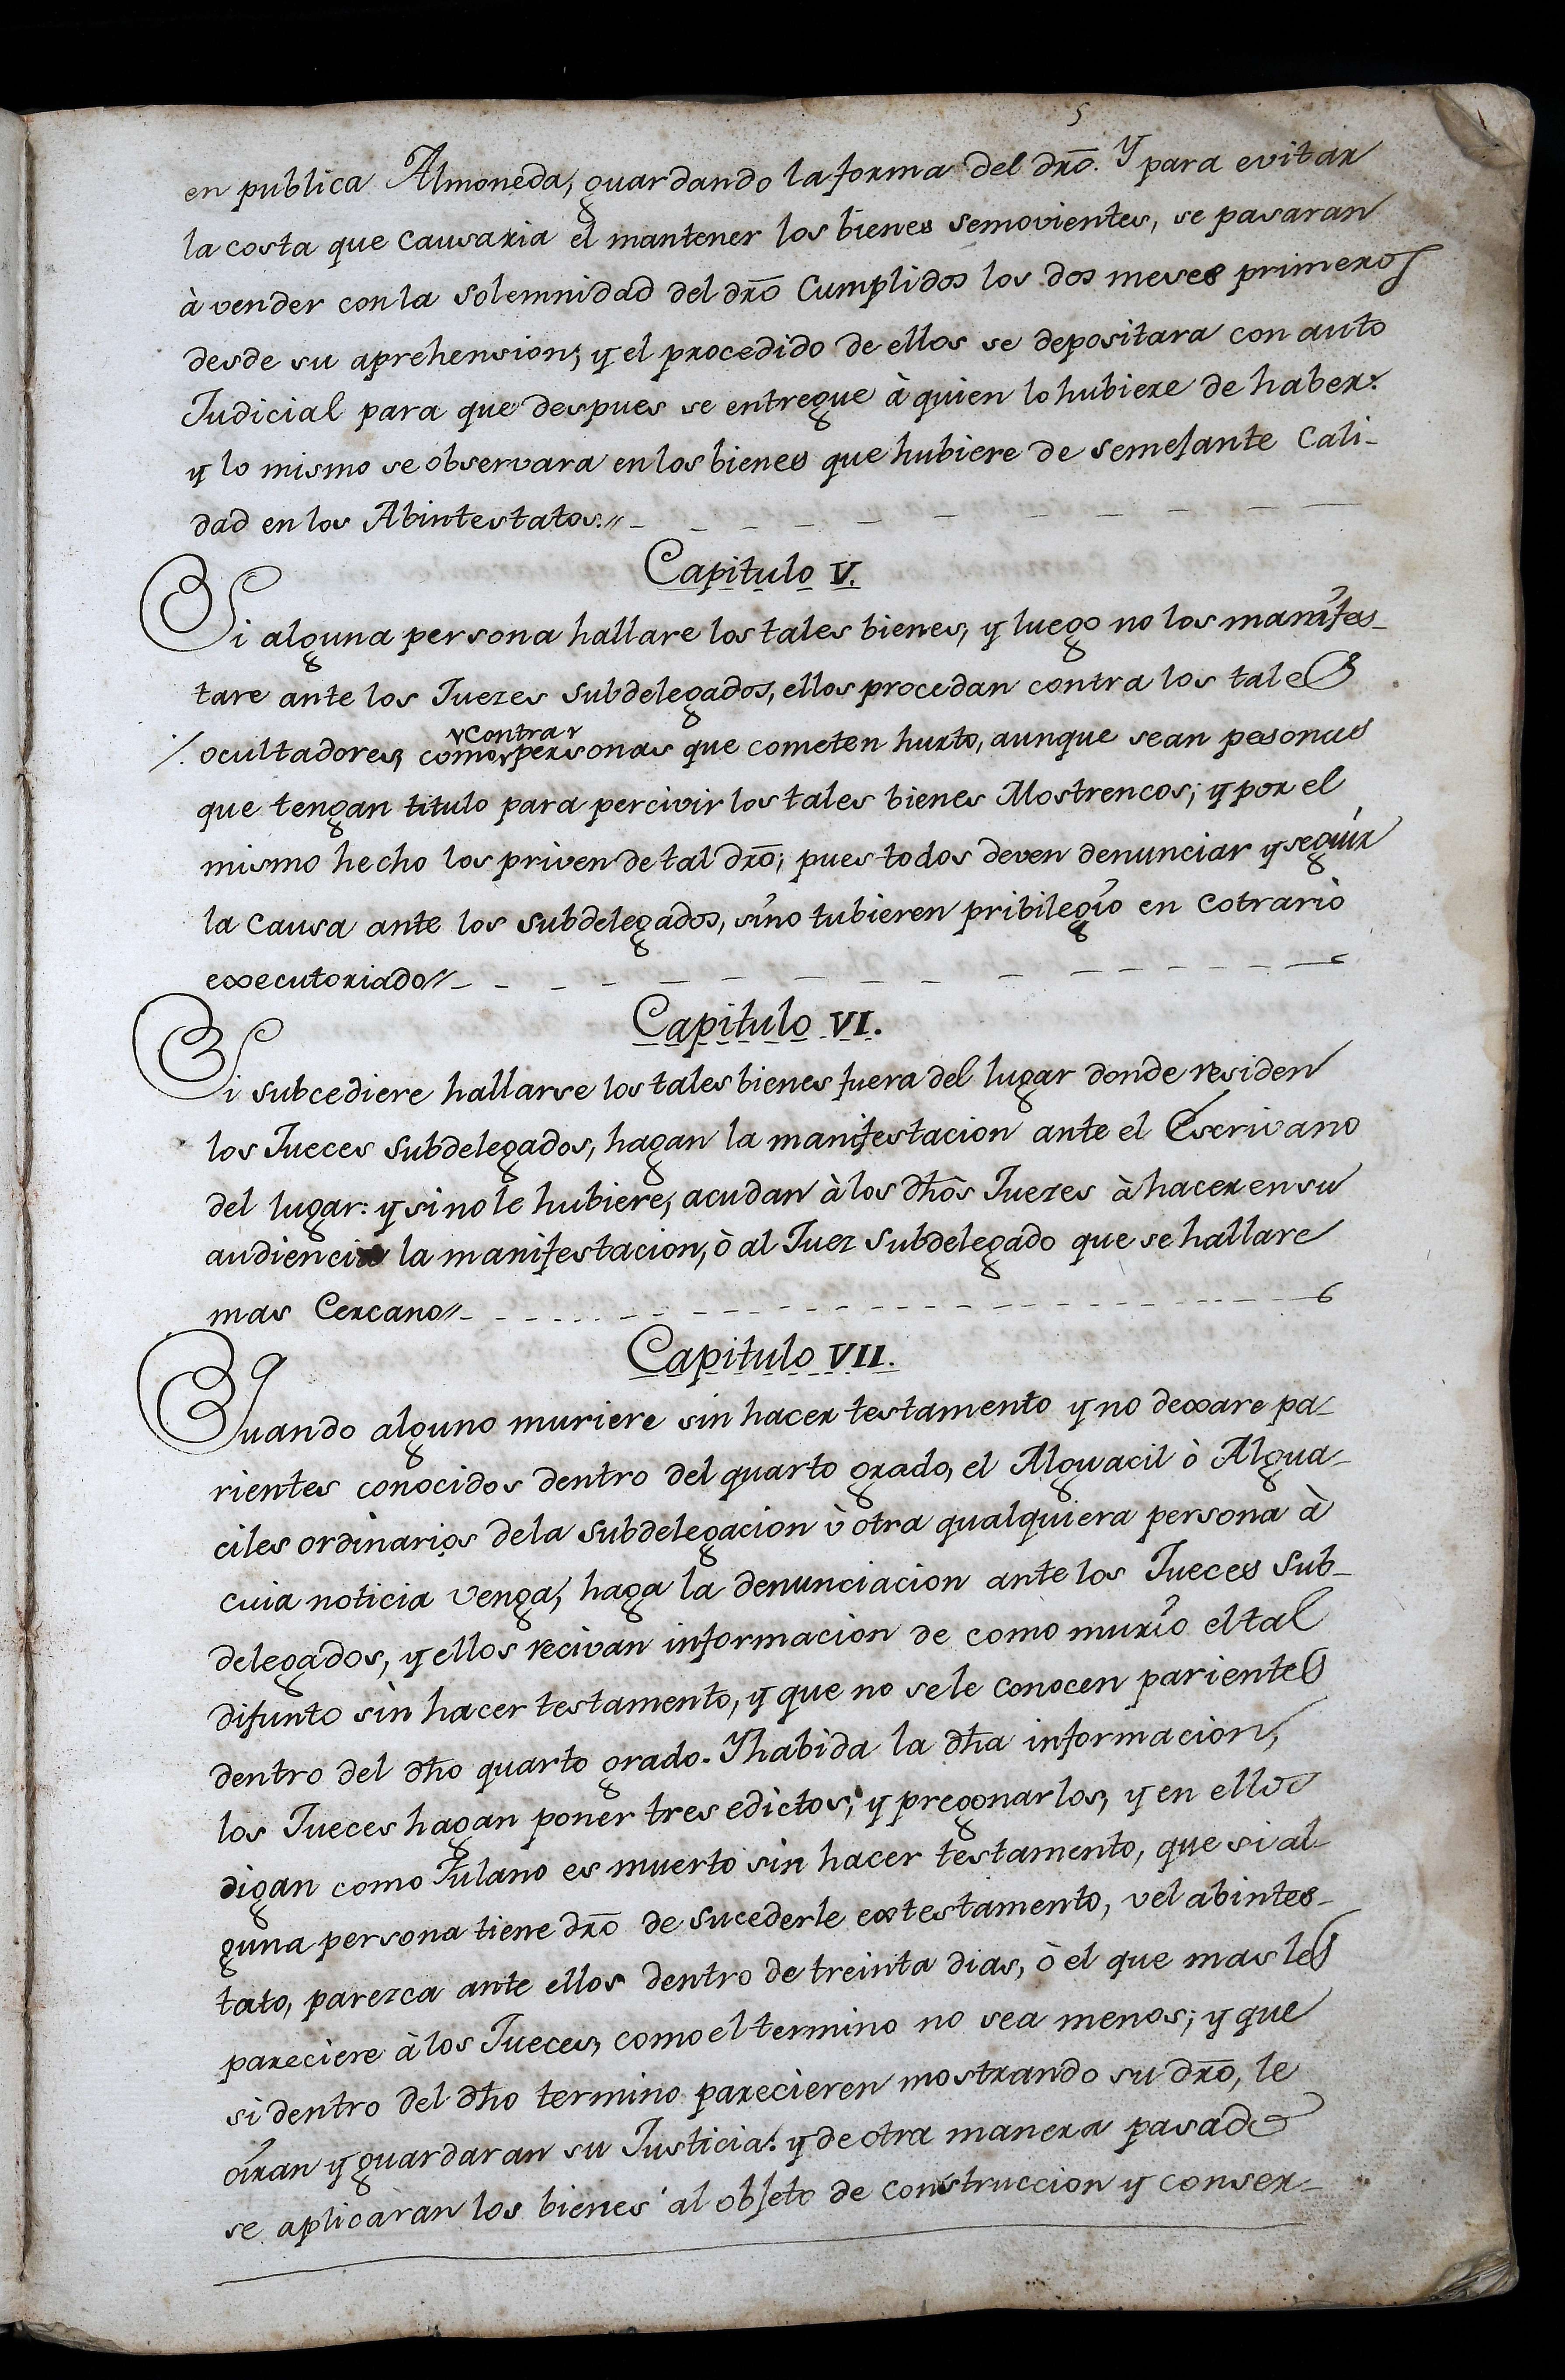 5
en publica Almoneda, guardando la forma del dr̃o. Y para evitar
la costa que causaria el mantener los bienes semovientes, se pasaran
à vender con la solemnidad del dr̃o Cumplidos los dos meses primeros
desde su aprehension; y el procedido de ellos se depositara con auto
Judicial para que despues se entregue à quien lo hubiere de haber:
y lo mismo se observara en los bienes que hubiere de semejante Cali-
dad en los Abintestatos.//
Capitulo V.
Si alguna persona hallare los tales bienes, y luego no los manifes-
tare ante los Juezes Subdelegados, ellos procedan contra los tales
contra
/. ocultadores, como personas que cometen hurto, aunque sean pesonas
que tengan titulo para percivir los tales bienes Mostrencos; y por el
mismo hecho los priven de tal dr̃o; pues todos deven denunciar y seguir
la Causa ante los subdelegados, sino tubieren pribilegio en cotrario
executoriado//
Capitulo VI.
Si subcediere hallarse los tales bienes fuera del lugar donde residen
los Jueces subdelegados, hagan la manifestacion ante el Escrivano
del lugar: y si no le hubiere, acudan à los dh̃os Juezes à hacer en su
audiencia la manifestacion, ò al Juez Subdelegado que se hallare
mas Cercano//
Capitulo VII.
Quando alguno muriere sin hacer testamento y no dexare pa-
rientes conocidos dentro del quarto grado, el Alguacil ò Algua-
ciles ordinarios dela subdelegacion ù otra qualquiera persona à
cuia noticia venga, haga la denunciacion ante los Jueces Sub-
delegados, y ellos recivan informacion de como murio el tal
difunto sin hacer testamento, y que no se le conocen parientes
dentro del dh̃o quarto grado. Y habida la dh̃a informacion,
los Jueces hagan poner tres edictos, y pregonarlos, y en ellos
digan como Fulano es muerto sin hacer testamento, que si al-
guna persona tiene dr̃o de sucederle extestamento, vel abintes-
tato, parezca ante ellos dentro de treinta dias, ò el que mas les
pareciere à los Jueces, como el termino no sea menos; y que
si dentro del dh̃o termino parecieren mostrando su dr̃o, le
oiran y guardaran su Justicia: y de otra manera pasado
se aplicaran los bienes al objeto de construccion y conser-